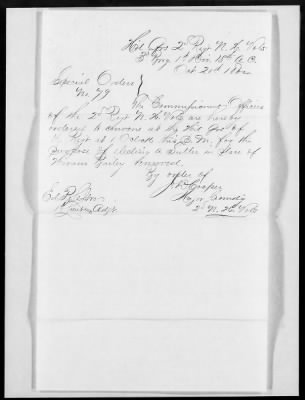 Hd Qrs 2d Regt N. H. Vols
3d Brig 1st Div 18th A.C.
Oct 21st 186
Special Orders
No. 79
The Commissioned Officers
of the 2d Regt N. H. Vols are hereby
ordered to convene at the Hd Qrs of
the Regt at 1 O'clock this P. M. for the
purpose of electing a Sutler in place of
Hiram removed.
By order of
J. D. Cooper
Major Comdg
2d N. H. Vols
Adjt